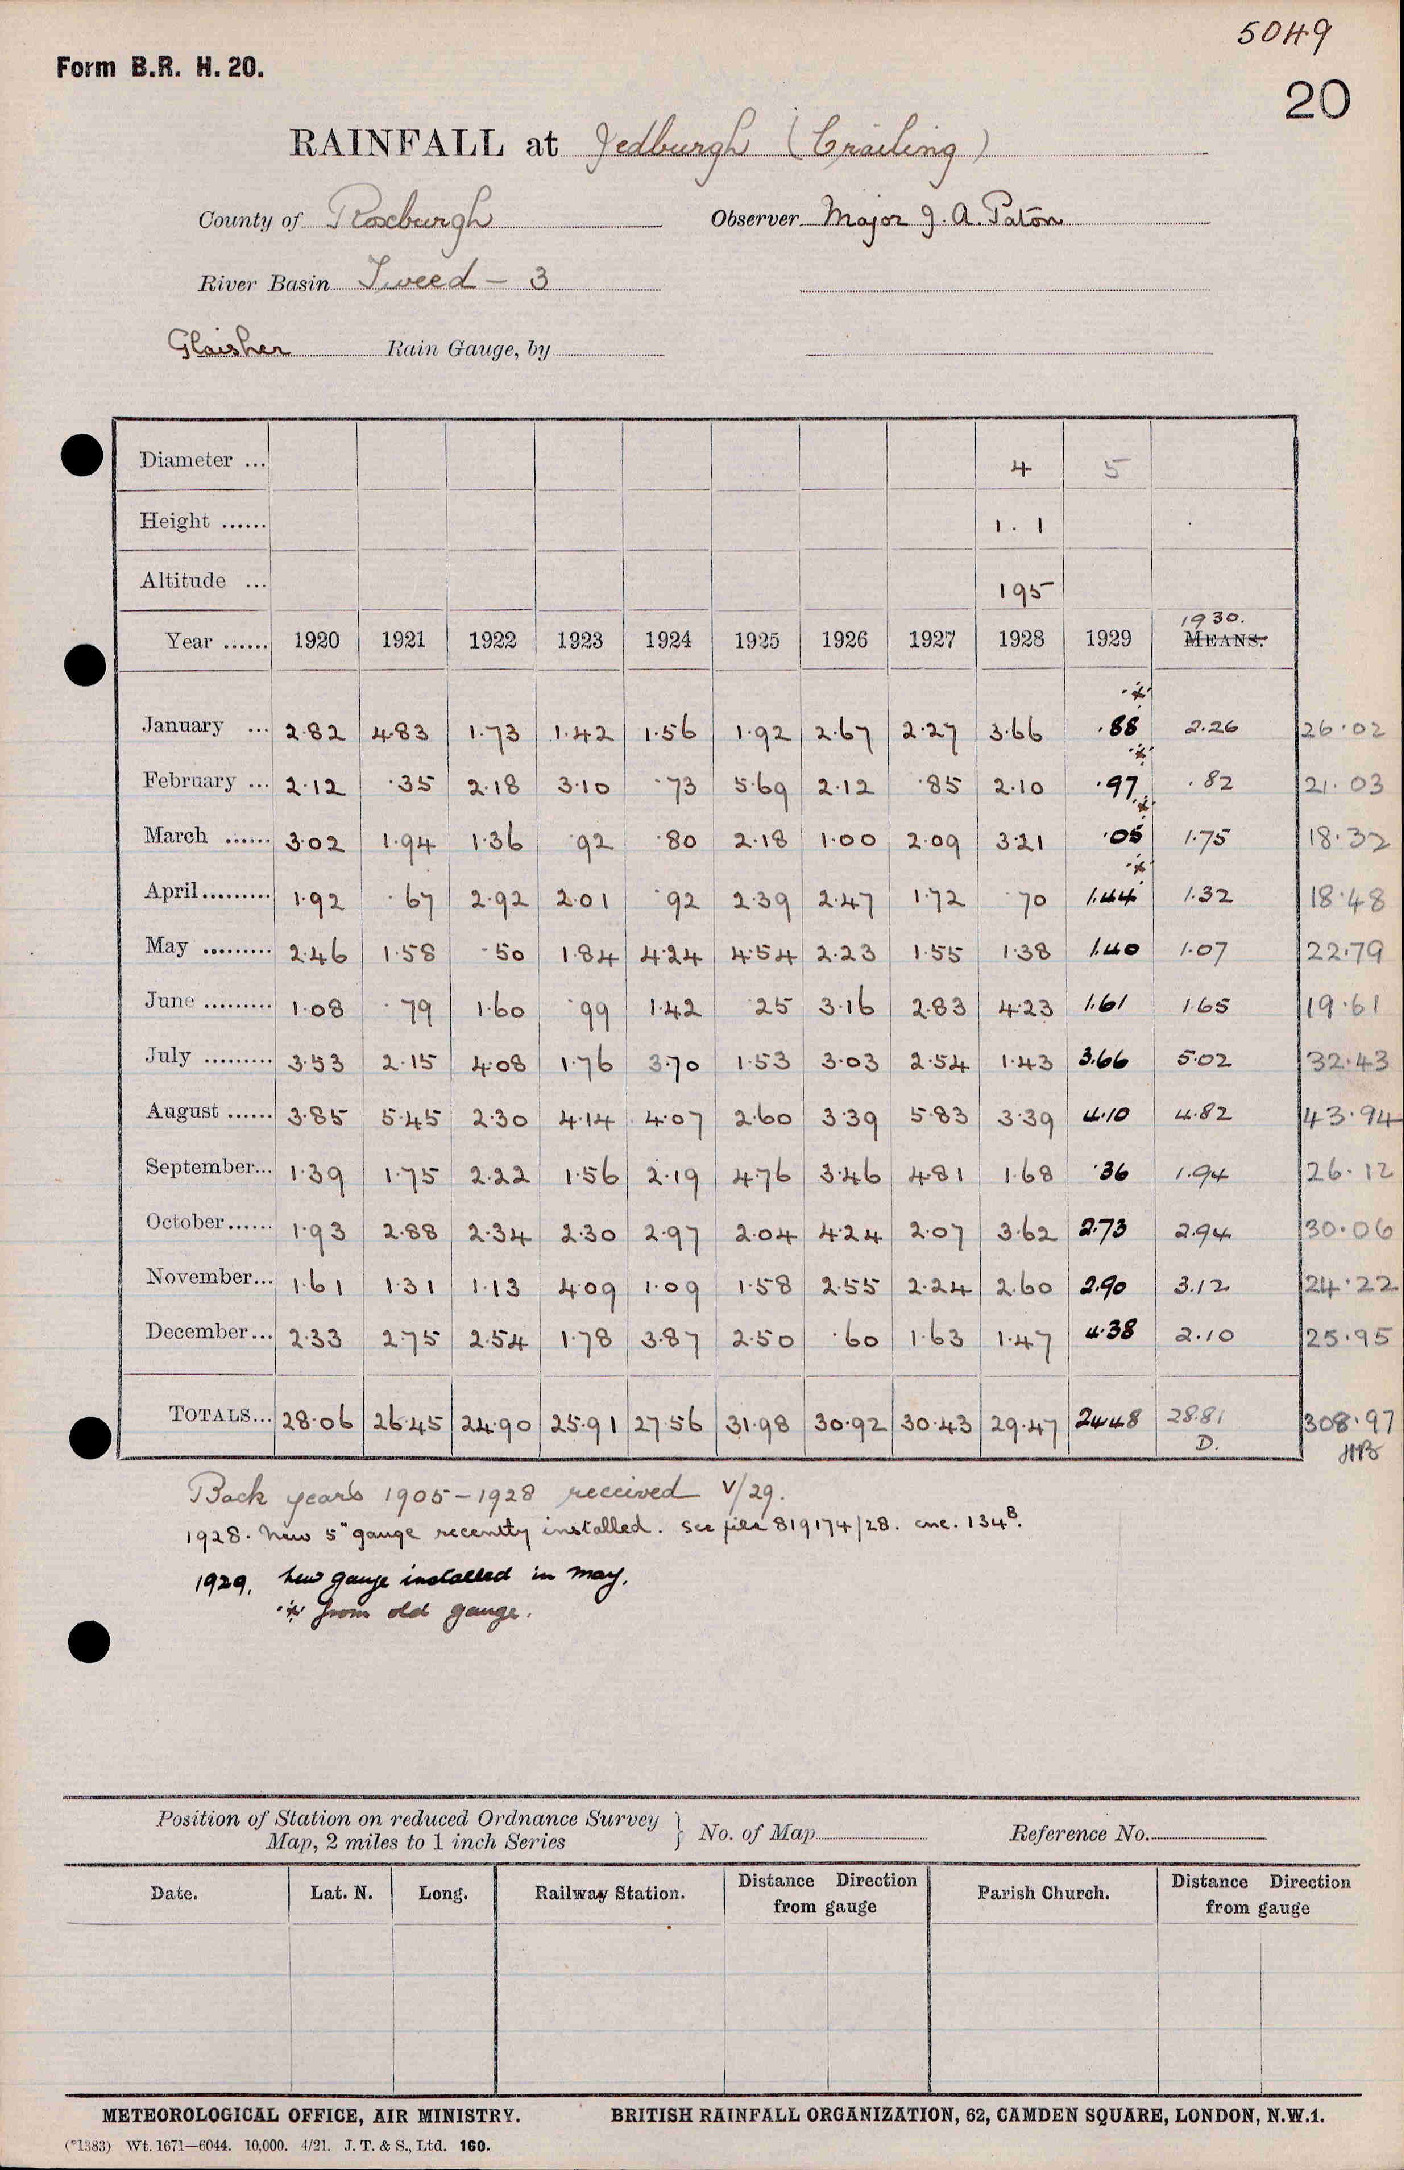 5049
Form B.R. H. 20.
20
RAINFALL at Jedburgh (Crailing)
County of Roxburgh Observer Major J. A. Paton
River Basin Tweed - 3
Glaisher Rain Gauge, by
Diameter ... 4 5
Height ...... 1 . 1
Altitude ... 195
1930.
Year ...... 1920 1921 1922 1923 1924 1925 1926 1927 1928 1929 MEANS.
January ... 2.82 4.83 1.73 1.42 1.56 1.92 2.67 2.27 3.66 * .88 2.26 26.02
February ... 2.12 .35 2.18 3.10 .73 5.69 2.12 .85 2.10 * .97 .82 21.03
March ...... 3.02 1.94 1.36 .92 .80 2.18 1.00 2.09 3.21 * .05 1.75 18.32
April ......... 1.92 .67 2.92 2.01 .92 2.39 2.47 1.72 .70 * 1.44 1.32 18.48
May ......... 2.46 1.58 .50 1.84 4.24 4.54 2.23 1.55 1.38 1.40 1.07 22.79
June ......... 1.08 .79 1.60 .99 1.42 .25 3.16 2.83 4.23 1.61 1.65 19.61
July ......... 3.53 2.15 4.08 1.76 3.70 1.53 3.03 2.54 1.43 3.66 5.02 32.43
August ...... 3.85 5.45 2.30 4.14 4.07 2.60 3.39 5.83 3.39 4.10 4.82 43.94
September... 1.39 1.75 2.22 1.56 2.19 4.76 3.46 4.81 1.68 .36 1.94 26.12
October ...... 1.93 2.88 2.34 2.30 2.97 2.04 4.24 2.07 3.62 2.73 2.94 30.06
November... 1.61 1.31 1.13 4.09 1.09 1.58 2.55 2.24 2.60 2.90 3.12 24.22
December... 2.33 2.75 2.54 1.78 3.87 2.50 .60 1.63 1.47 4.38 2.10 25.95
TOTALS... 28.06 26.45 24.90 25.91 27.56 31.98 30.92 30.43 29.47 24.48 28.81 308.97
D.
Back years 1905-1928 received V/29.
1928. New 5" gauge recently installed. See file 819174/28. enc. 134B.
1929. New gauge installed in May.
* from old gauge.
Position of Station on reduced Ordnance Survey
Map, 2 miles to 1 inch Series } No. of Map Reference No.
Date. Lat. N. Long. Railway Station. Distance Direction from gauge Parish Church. Distance Direction from gauge
METEOROLOGICAL OFFICE, AIR MINISTRY. BRITISH RAINFALL ORGANIZATION, 62, CAMDEN SQUARE, LONDON, N.W.1.
(*1383) Wt. 1671—6044. 10,000. 4/21. J. T. & S., Ltd. 160.